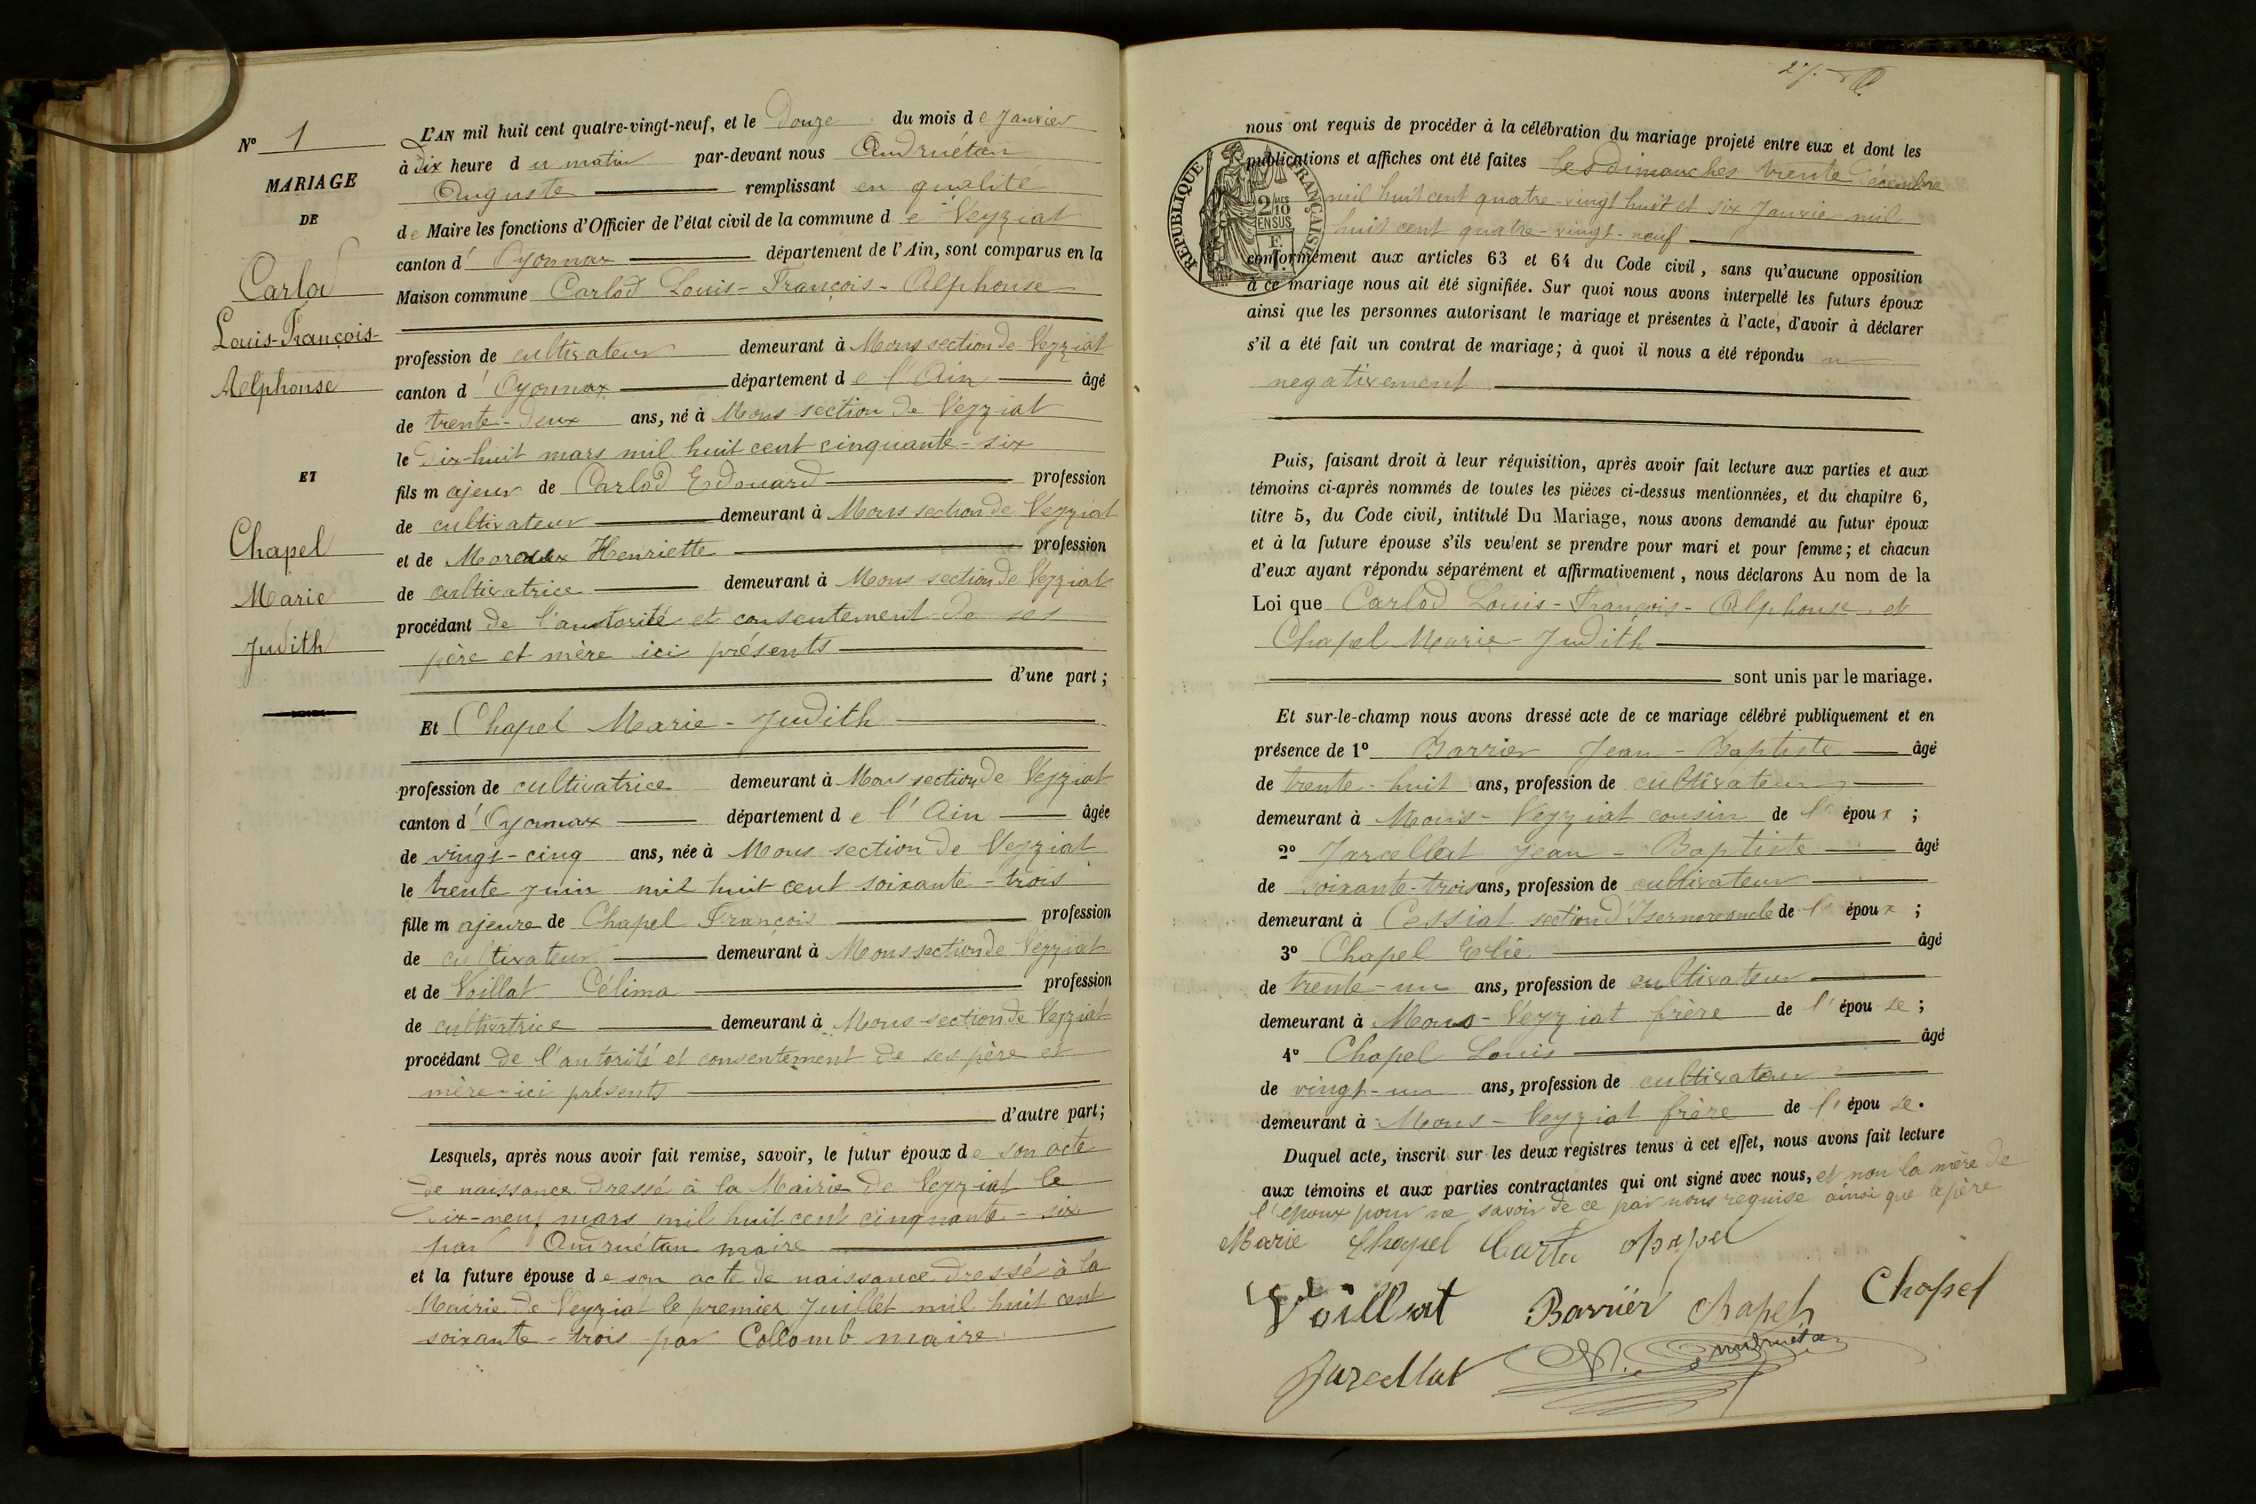 Nº 1
MARIAGE
DE
Carlod
Louis-François-
Alphonse
ET
Chapel
Marie
Judith
L'AN mil huit cent quatre-vingt-neuf, et le Douze du mois de Janvier
à dix heure du matin par-devant nous Andruétan
Auguste remplissant en qualité
de Maire les fonctions d'Officier de l'état civil de la commune de Veyziat
canton d'Oyonnax département de l'Ain, sont comparus en la
Maison commune Carlod Louis-François-Alphonse
profession de cultivateur demeurant à Mons section de Veyziat
canton d'Oyonnax département de l'Ain âgé
de trente-deux ans, né à Mons section de Veyziat
le Dix-huit mars mil huit cent cinquante-six
fils majeur de Carlod Edouard profession
de cultivateur demeurant à Mons section de Veyziat
et de Moreaux Henriette profession
de cultivatrice demeurant à Mons section de Veyziat
procédant de l'autorité et consentement de ses
père et mère ici présents
d'une part;
Et Chapel Marie-Judith
profession de cultivatrice demeurant à Mons section de Veyziat
canton d'Oyonnax département de l'Ain âgée
de vingt-cinq ans, née à Mons section de Veyziat
le trente Juin mil huit cent soixante-trois
fille majeure de Chapel François profession
de cultivateur demeurant à Mons section de Veyziat
et de Voillat Célima profession
de cultivatrice demeurant à Mons section de Veyziat
procédant de l'autorité et consentement de ses père et
mère-ici présents
d'autre part;
Lesquels, après nous avoir fait remise, savoir, le futur époux de son acte
de naissance dressé à la Mairie de Veyziat le
Dix-neuf mars mil huit cent cinquante-six
par Andruétan maire
et la future épouse de son acte de naissance dressé à la
Mairie de Veyziat le premier Juillet mil huit cent
soixante-trois par Collomb maire
27.
nous ont requis de procéder à la célébration du mariage projeté entre eux et dont les
publications et affiches ont été faites les dimanches trente Décembre
mil huit cent quatre-vingt huit et six Janvier mil
huit cent quatre-vingt-neuf
RÉPUBLIQUE FRANÇAISE
2/10
EN SUS
conformément aux articles 63 et 64 du Code civil, sans qu'aucune opposition
à ce mariage nous ait été signifiée. Sur quoi nous avons interpellé les futurs époux
ainsi que les personnes autorisant le mariage et présentes à l'acte, d'avoir à déclarer
s'il a été fait un contrat de mariage; à quoi il nous a été répondu
negativement
Puis, faisant droit à leur réquisition, après avoir fait lecture aux parties et aux
témoins ci-après nommés de toutes les pièces ci-dessus mentionnées, et du chapitre 6,
titre 5, du Code civil, intitulé Du Mariage, nous avons demandé au futur époux
et à la future épouse s'ils veulent se prendre pour mari et pour femme; et chacun
d'eux ayant répondu séparément et affirmativement, nous déclarons Au nom de la
Loi que Carlod Louis-François-Alphonse et
Chapel Marie-Judith
sont unis par le mariage.
Et sur-le-champ nous avons dressé acte de ce mariage célébré publiquement et en
présence de 1º Barrier Jean-Baptiste âgé
de trente-huit ans, profession de cultivateur
demeurant à Mons-Veyziat cousin de l'époux;
2º Jarcellat Jean-Baptiste âgé
de soixante-trois ans, profession de cultivateur
demeurant à Cessiat section d'Isernore oncle de l'époux;
3º Chapel Elie âgé
de trente-un ans, profession de cultivateur
demeurant à Mons-Veyziat frère de l'épouse;
4º Chapel Louis âgé
de vingt-un ans, profession de cultivateur
demeurant à Mons-Veyziat frère de l'épouse.
Duquel acte, inscrit sur les deux registres tenus à cet effet, nous avons fait lecture
aux témoins et aux parties contractantes qui ont signé avec nous, et non la mère de
l'époux pour ne savoir de ce par nous requise ainsi que le père
Marie Chapel Carlod Chapel
Voillat Barrier Chapel Chapel
Jarcellat Andruétan